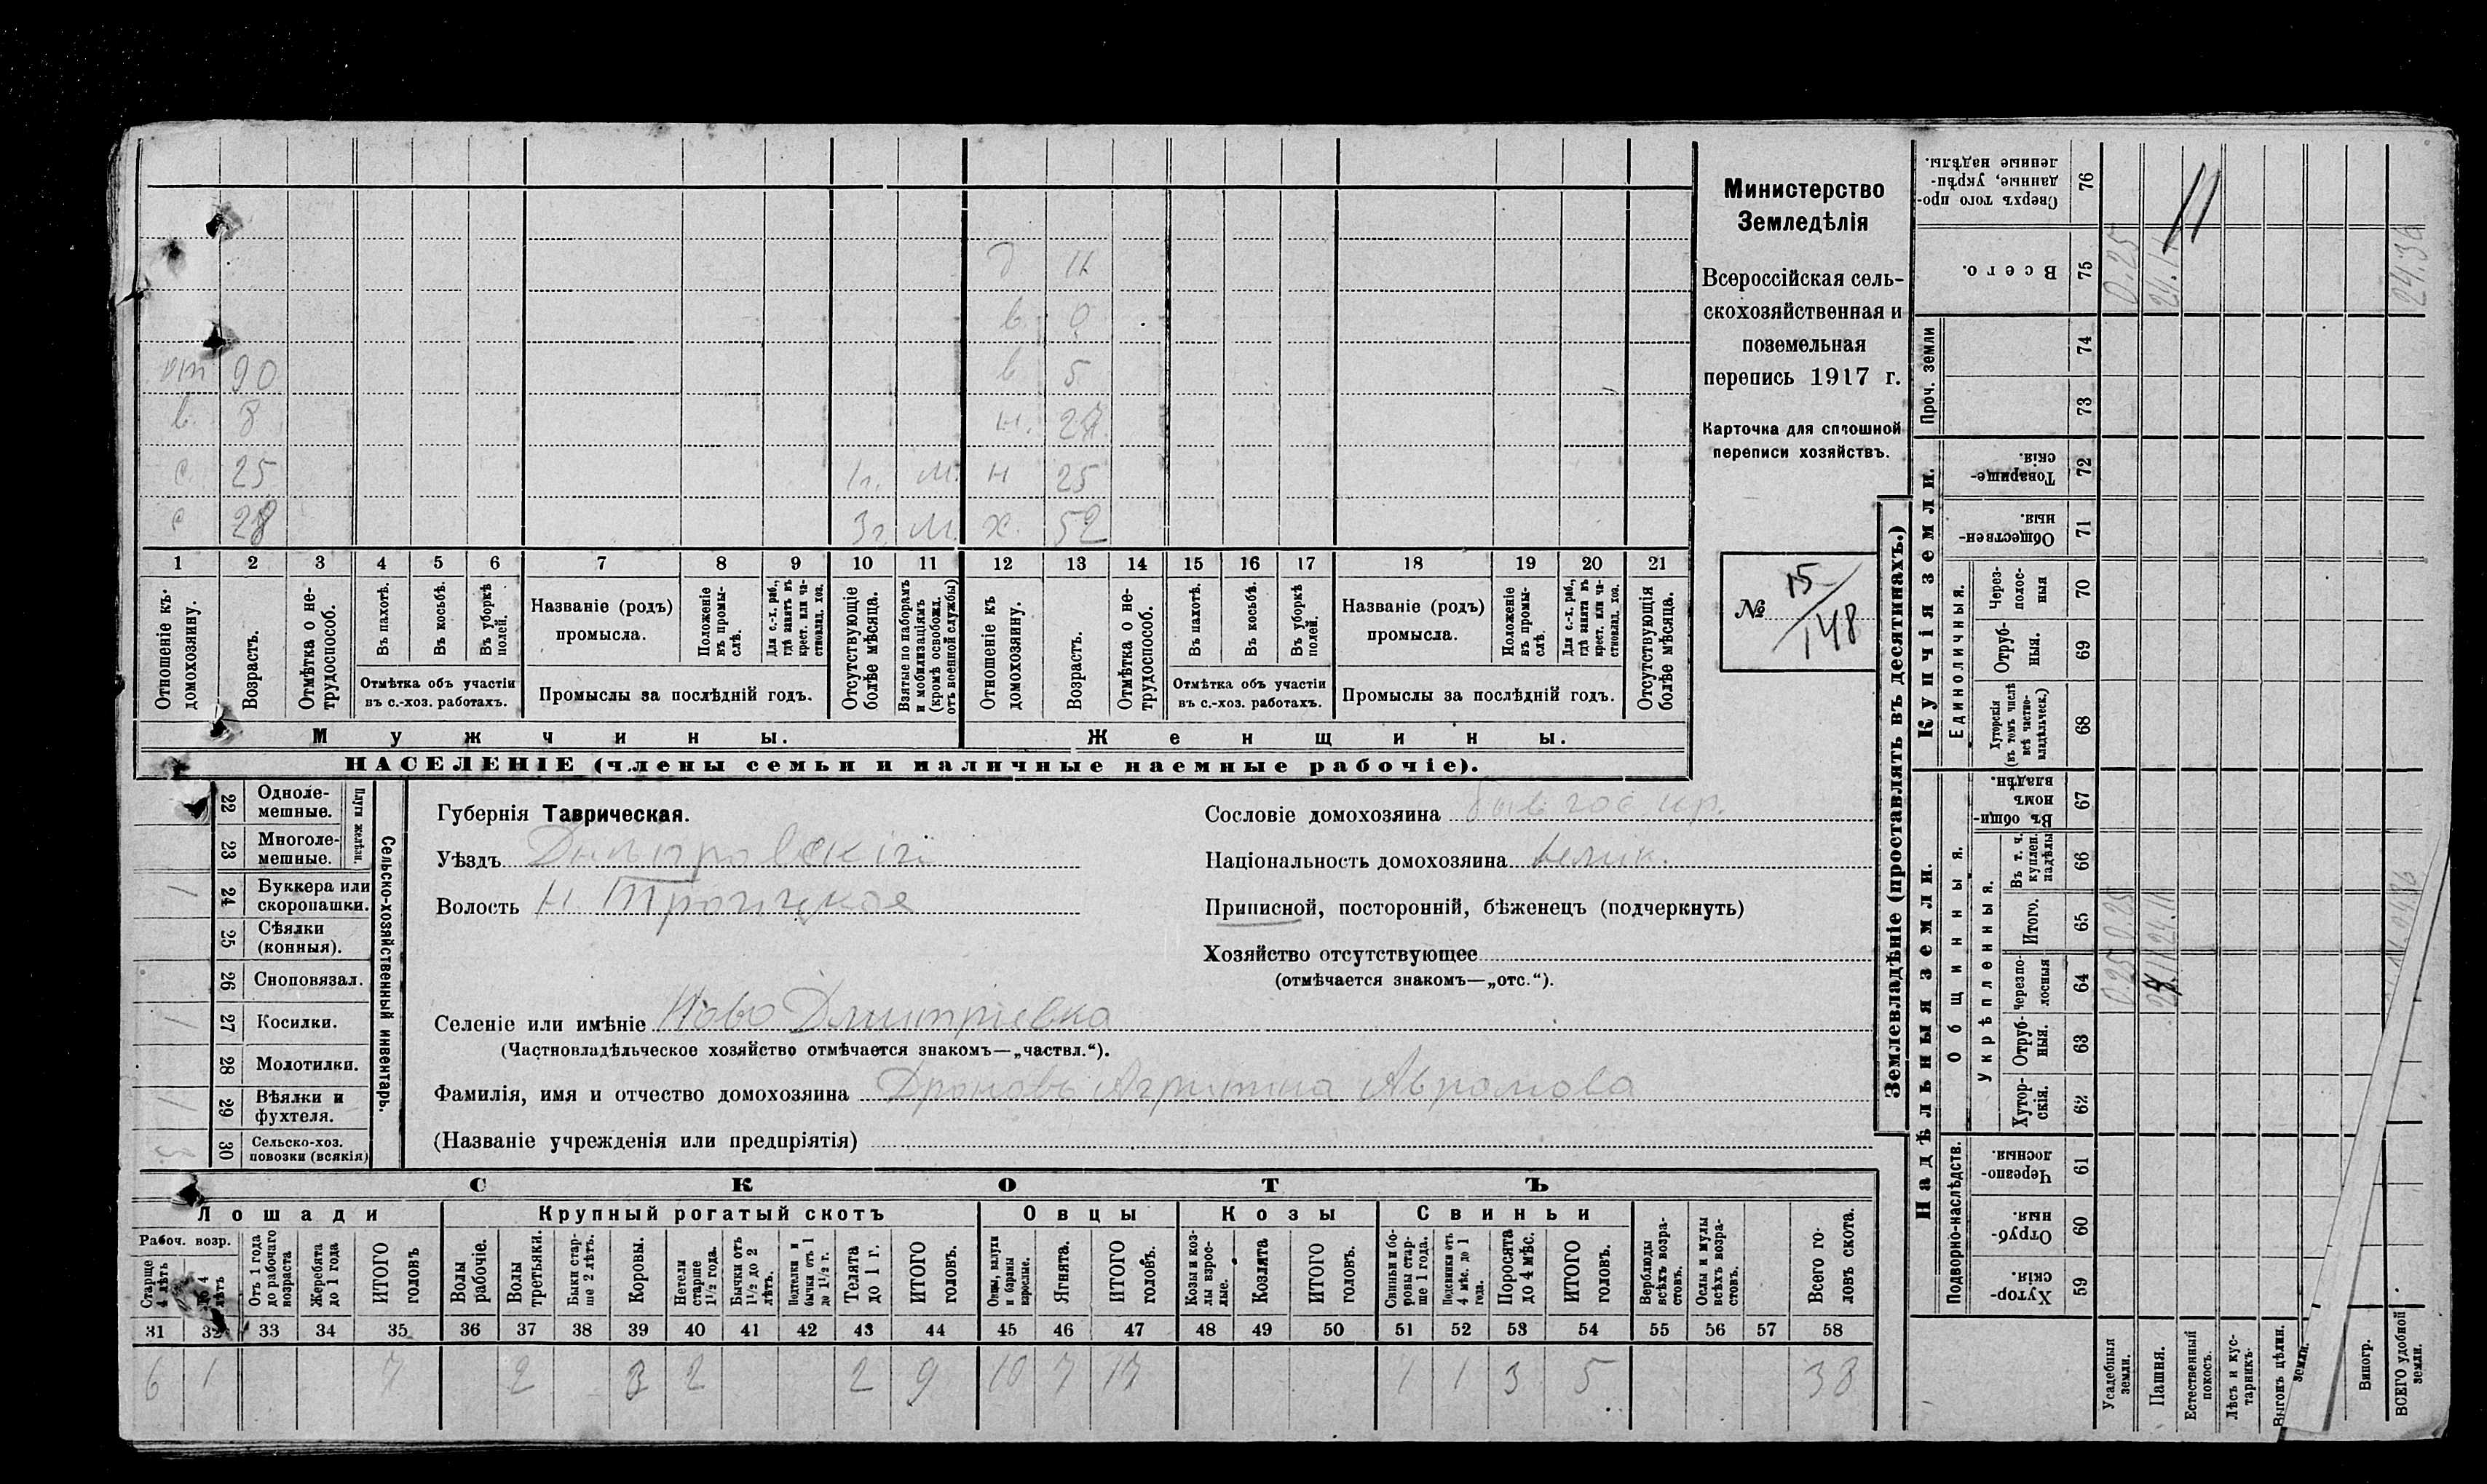 д 11
в. 9
от 90 в 5
в. 8 н. 27
с. 25 1г. м. н 25
с 28 3г. м. х. 52
1 2 3 4 5 6 7 8 9 10 11 12 13 14 15 16 17 18 19 20 21
Отношеніе къ домохозяину.
Возрастъ.
Отмѣтка о не-
трудоспособ.
Въ пахотѣ.
Въ косьбѣ.
Въ уборкѣ полей.
Отмѣтка объ участіи
въ с.-хоз. работахъ.
Названіе (родъ)
промысла.
Положеніе въ промы-
слѣ.
Для с.-х. раб., гдѣ занятъ въ крест. или ча-
стновлад. хоз.
Промыслы за послѣдній годъ.
Отсутствующіе болѣе мѣсяца.
Взятые по наборамъ и мобилизаціямъ (кромѣ освобожд. отъ военной службы)
Отношеніе къ домохозяину.
Возрастъ.
Отмѣтка о не-
трудоспособ.
Въ пахотѣ.
Въ косьбѣ.
Въ уборкѣ полей.
Отмѣтка объ участіи
въ с.-хоз. работахъ.
Названіе (родъ)
промысла.
Положеніе въ промы-
слѣ.
Для с.-х. раб., гдѣ занята въ крест. или ча-
стновлад. хоз.
Промыслы за послѣдній годъ.
Отсутствующія болѣе мѣсяца.
Мужчины. Женщины.
НАСЕЛЕНІЕ (члены семьи и наличные наемные рабочіе).
Министерство
Земледѣлія
Всероссійская сель-
скохозяйственная и
поземельная
перепись 1917 г.
Карточка для сплошной
переписи хозяйствъ.
№ 15/148
22 Одноле-
мешные.
23 Многоле-
мешные.
Плуги желѣзн.
1 24 Буккера или
скоропашки.
25 Сѣялки
(конныя).
26 Сноповязал.
1 27 Косилки.
28 Молотилки.
1 29 Вѣялки и
фухтеля.
30 Сельско-хоз.
повозки (всякія)
Сельско-хозяйственный инвентарь.
Губернія Таврическая.
Уѣздъ Днѣпровскій
Волость Н Троицкое
Сословіе домохозяина быв гос. кр.
Національность домохозяина велик.
Приписной, посторонній, бѣженецъ (подчеркнуть)
Хозяйство отсутствующее
(отмѣчается знакомъ—„отс.“).
Селеніе или имѣніе Ново Дмитріевка
(Частновладѣльческое хозяйство отмѣчается знакомъ—„частвл.“).
Фамилія, имя и отчество домохозяина Дроновъ Агрипина Аврамова
(Названіе учрежденія или предпріятія)
СКОТЪ
Лошади Крупный рогатый скотъ Овцы Козы Свиньи
Рабоч. возр.
Старше 4 лѣтъ
до 4 лѣтъ
Отъ 1 года до рабочаго возраста
Жеребята до 1 года
ИТОГО головъ
Волы рабочіе.
Волы третьяки.
Быки стар-
ше 2 лѣтъ.
Коровы.
Нетели старше 1½ года.
Бычки отъ 1½ до 2 лѣтъ.
Подтелки и бычки отъ 1 до 1½ г.
Телята до 1 г.
ИТОГО головъ.
Овцы, валухи и бараны взрослые.
Ягнята.
ИТОГО головъ.
Козы и коз-
лы взрос-
лые.
Козлята
ИТОГО головъ.
Свиньи и бо-
ровы стар-
ше 1 года.
Подсвинки отъ 4 мѣс. до 1 года.
Поросята до 4 мѣс.
ИТОГО головъ.
Верблюды всѣхъ возра-
стовъ.
Ослы и мулы всѣхъ возра-
стовъ.
Всего го-
ловъ скота.
31 32 33 34 35 36 37 38 39 40 41 42 43 44 45 46 47 48 49 50 51 52 53 54 55 56 57 58
6 1 7 2 3 2 2 9 10 7 17 1 1 3 5 38
Землевладѣніе (проставлять въ десятинахъ.)
Надѣльныя земли. Купчія земли.
Проч. земли
Подворно-наслѣдств.
Общинныя.
Укрѣпленныя.
Единоличныя.
76 Сверхъ того про-
данные, укрѣп-
ленные надѣлы.
75 Всего. 0.25 24.11 24.36
74
73
72 Товарище-
скія.
71 Обществен-
ныя.
70 Через-
полос-
ныя
69 Отруб-
ныя.
68 Хуторскія (въ томъ числѣ всѣ частно-
владѣльческ.)
67 Въ общин-
номъ
владѣн.
66 Въ т. ч. куплен. надѣлы
65 Итого. 0.25 24.11
64 Черезпо-
лосныя 0.25 24.11
63 Отруб-
ныя.
62 Хутор-
скія.
61 Черезпо-
лосныя.
60 Отруб-
ныя.
59 Хутор-
скія.
Усадебныя земли.
Пашня.
Естественный покосъ.
Лѣсъ и кус-
тарникъ.
Выгонъ цѣлин.
земли.
Виногр.
ВСЕГО удобной земли.